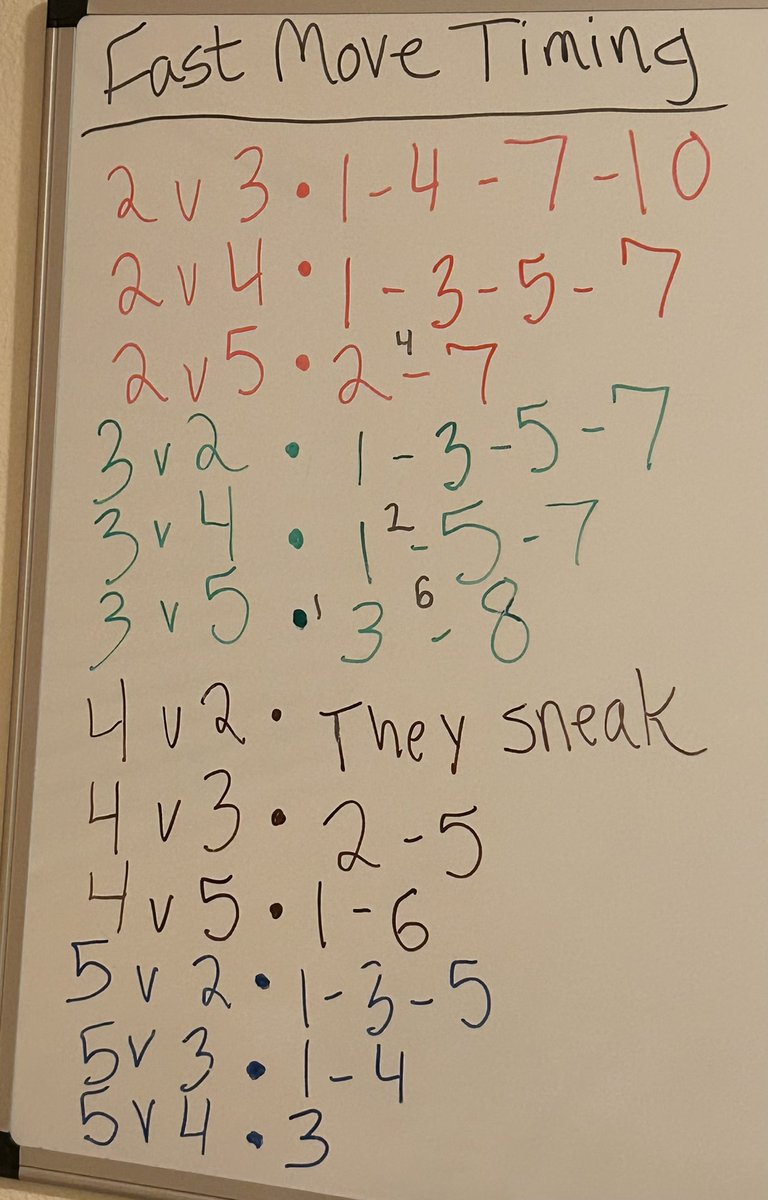 Fast Move Timing
2 v 3 • 1 - 4 - 7 - 10
2 v 4 • 1 - 3 - 5 - 7
2 v 5 • 2 - 4 7
3 v 2 • 1 - 3 - 5 - 7
3 v 4 • 1 2 - 5 - 7
3 v 5 • 1 3 6 - 8
4 v 2 • They sneak
4 v 3 • 2 - 5
4 v 5 • 1 - 6
5 v 2 • 1 - 3 - 5
5 v 3 • 1 - 4
5 v 4 • 3